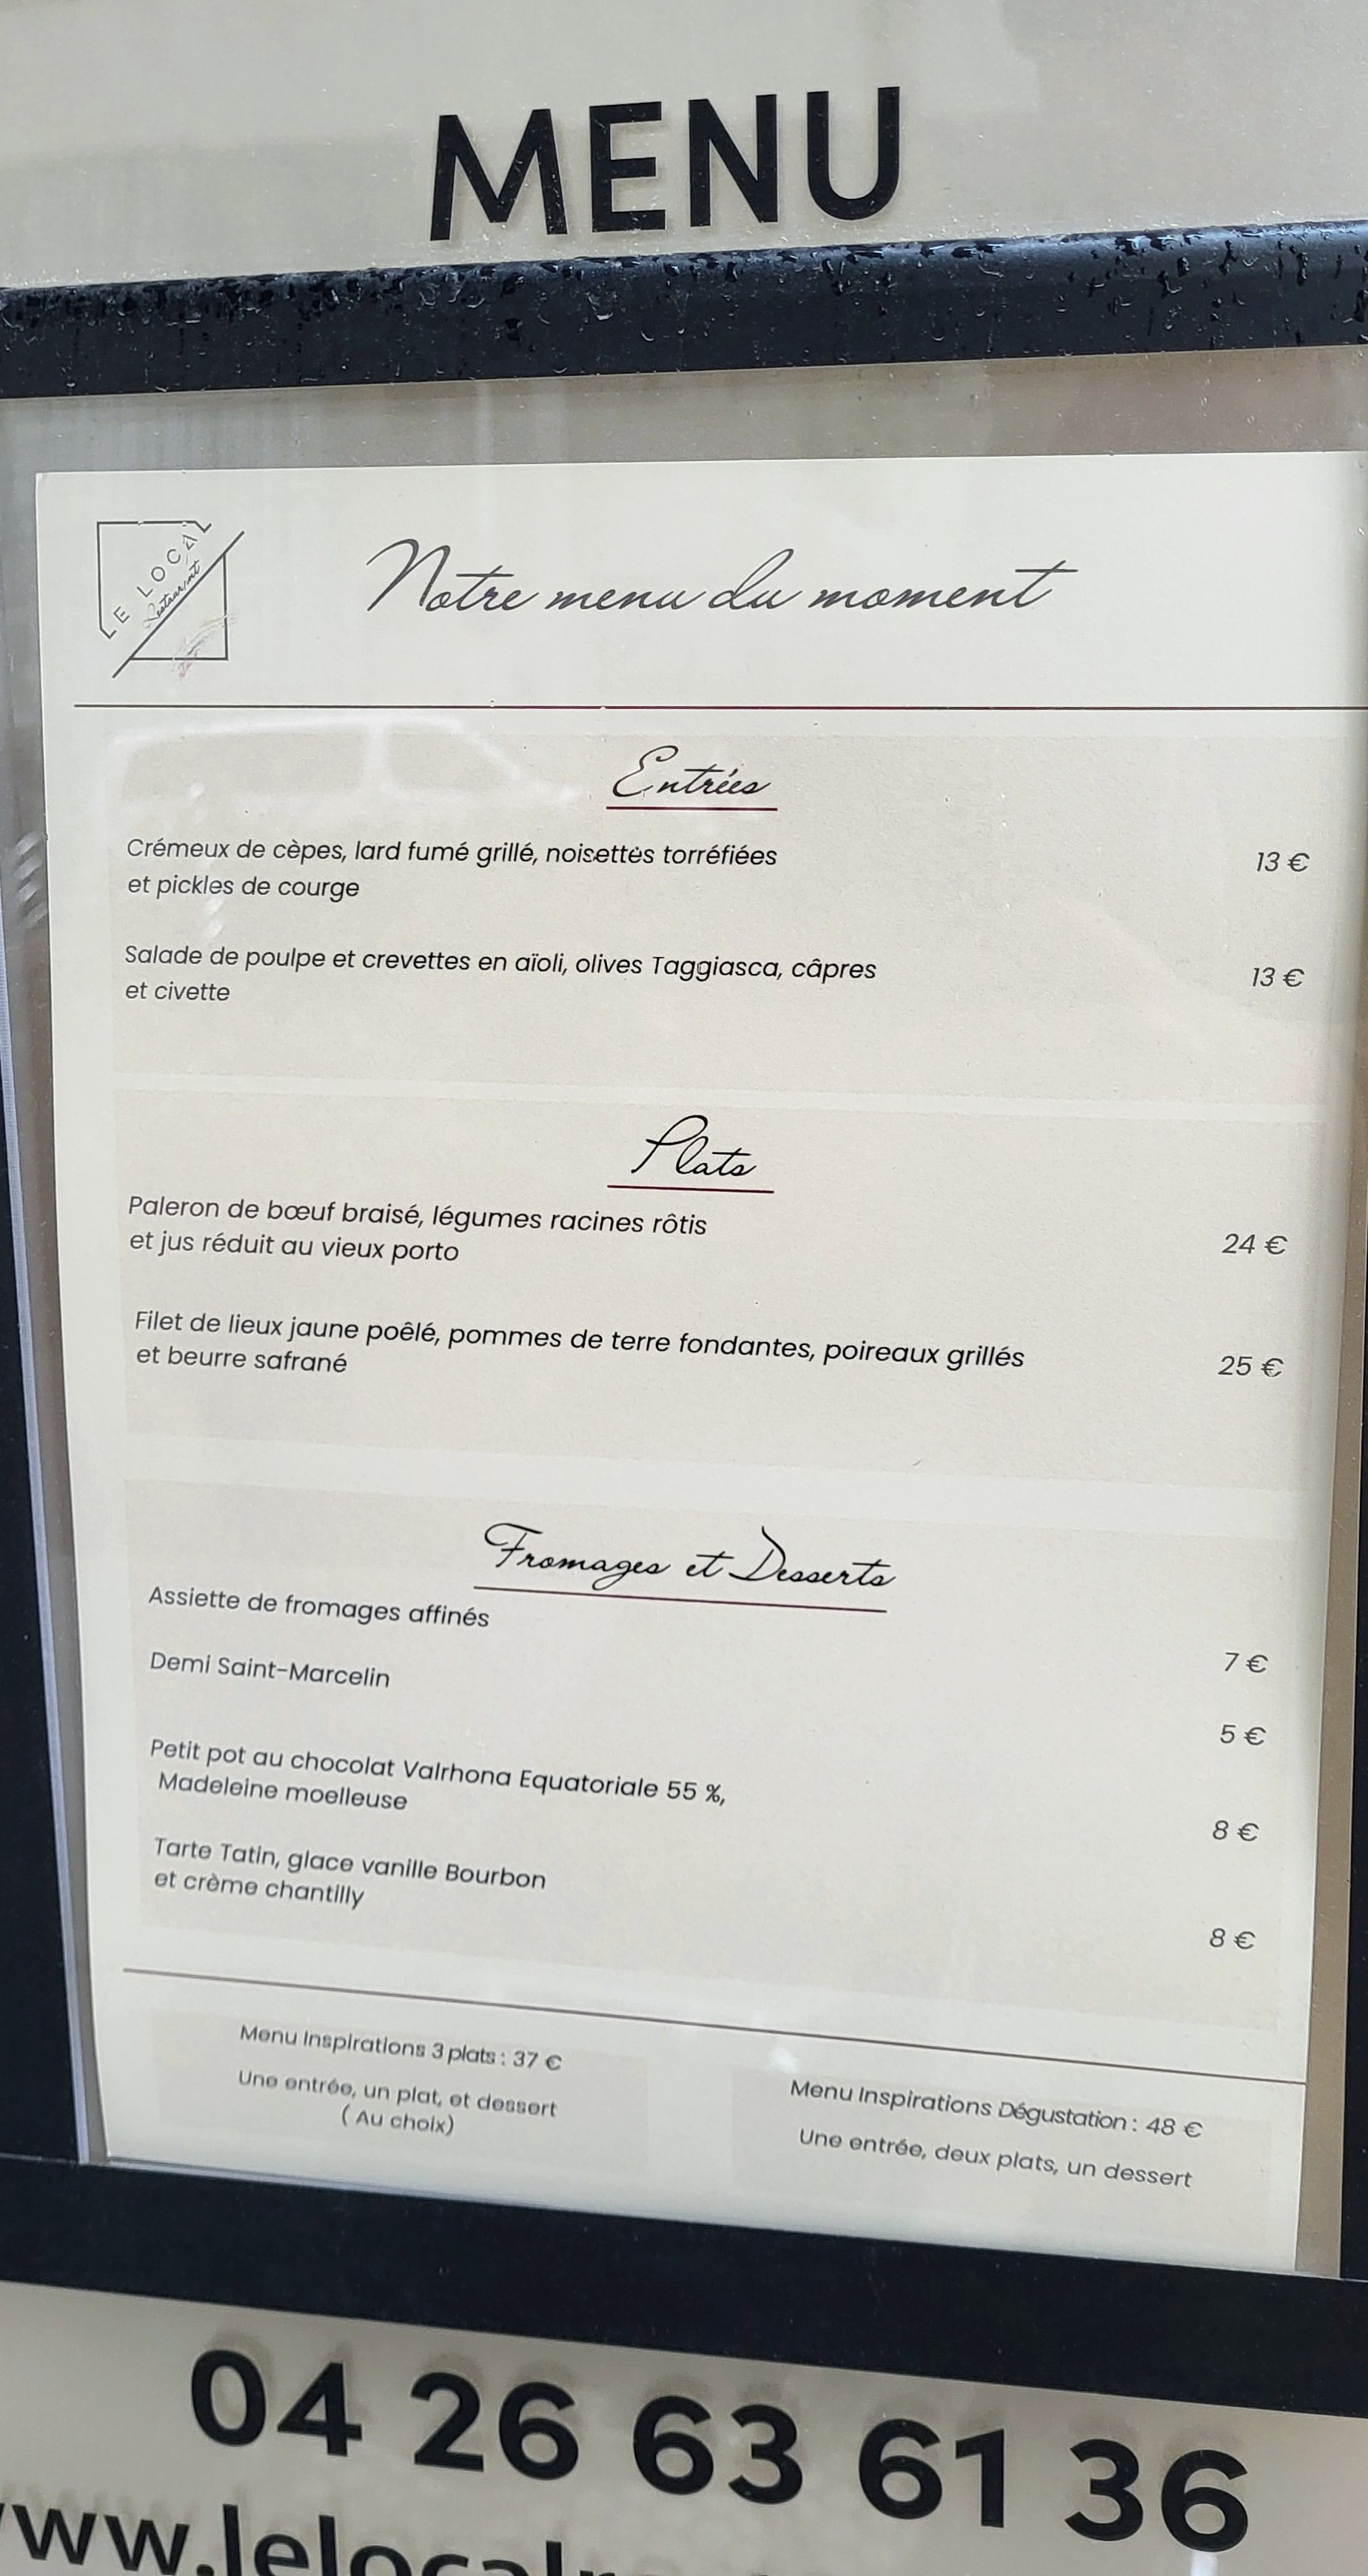 MENU
LE LOCAL
Restaurant
Notre menu du moment
Entrées
Crémeux de cèpes, lard fumé grillé, noisettes torréfiées
et pickles de courge
13 €
Salade de poulpe et crevettes en aïoli, olives Taggiasca, câpres
et civette
13 €
Plats
Paleron de bœuf braisé, légumes racines rôtis
et jus réduit au vieux porto
24 €
Filet de lieux jaune poêlé, pommes de terre fondantes, poireaux grillés
et beurre safrané
25 €
Fromages et Desserts
Assiette de fromages affinés
7 €
Demi Saint-Marcelin
5 €
Petit pot au chocolat Valrhona Equatoriale 55 %,
Madeleine moelleuse
8 €
Tarte Tatin, glace vanille Bourbon
et crème chantilly
8 €
Menu Inspirations 3 plats : 37 €
Une entrée, un plat, et dessert
( Au choix)
Menu Inspirations Dégustation : 48 €
Une entrée, deux plats, un dessert
04 26 63 61 36